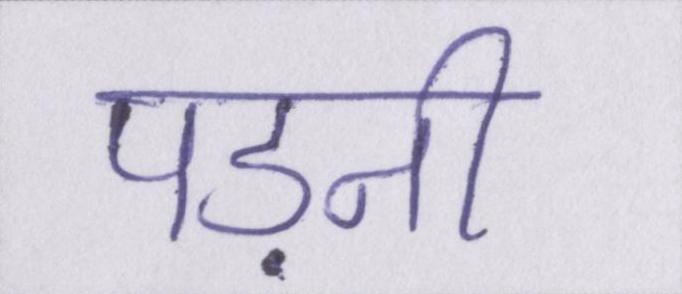 पड़नी